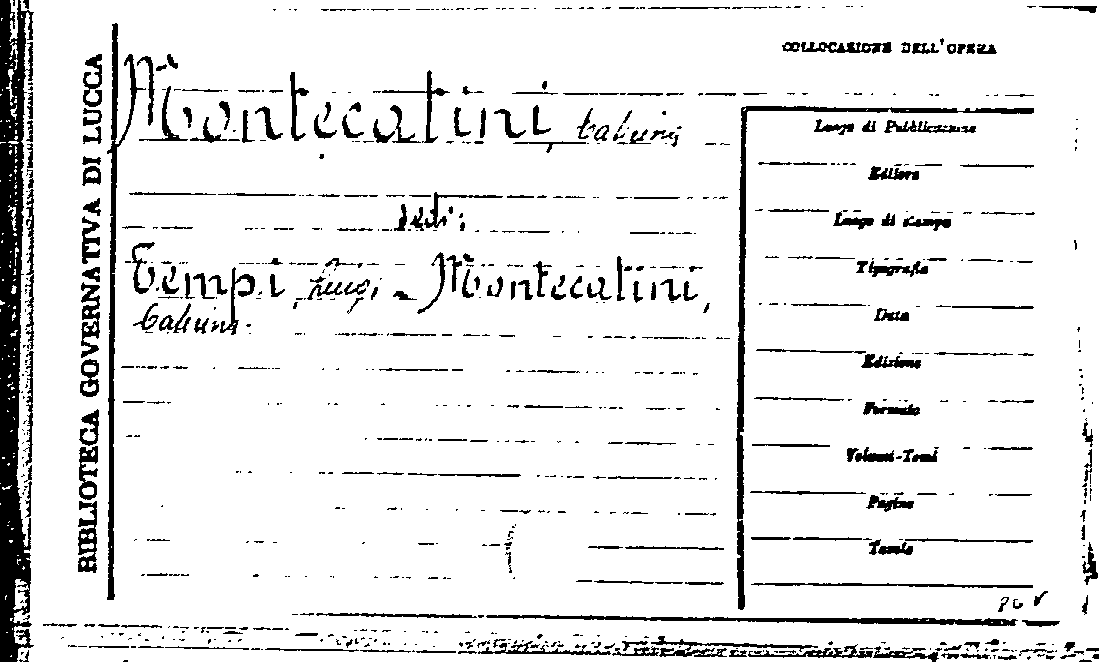 BIBLIOTECA GOVERNATIVA DI LUCCA
COLLOCAZIONE DELL'OPERA
Montecatini,
vedi:
Tempi, Luigi - Montecatini,
Luogo di Pubblicazione
Editore
Luogo di stampa
Tipografia
Data
Edizione
Formato
Volumi-Tomi
Pagine
Tavole